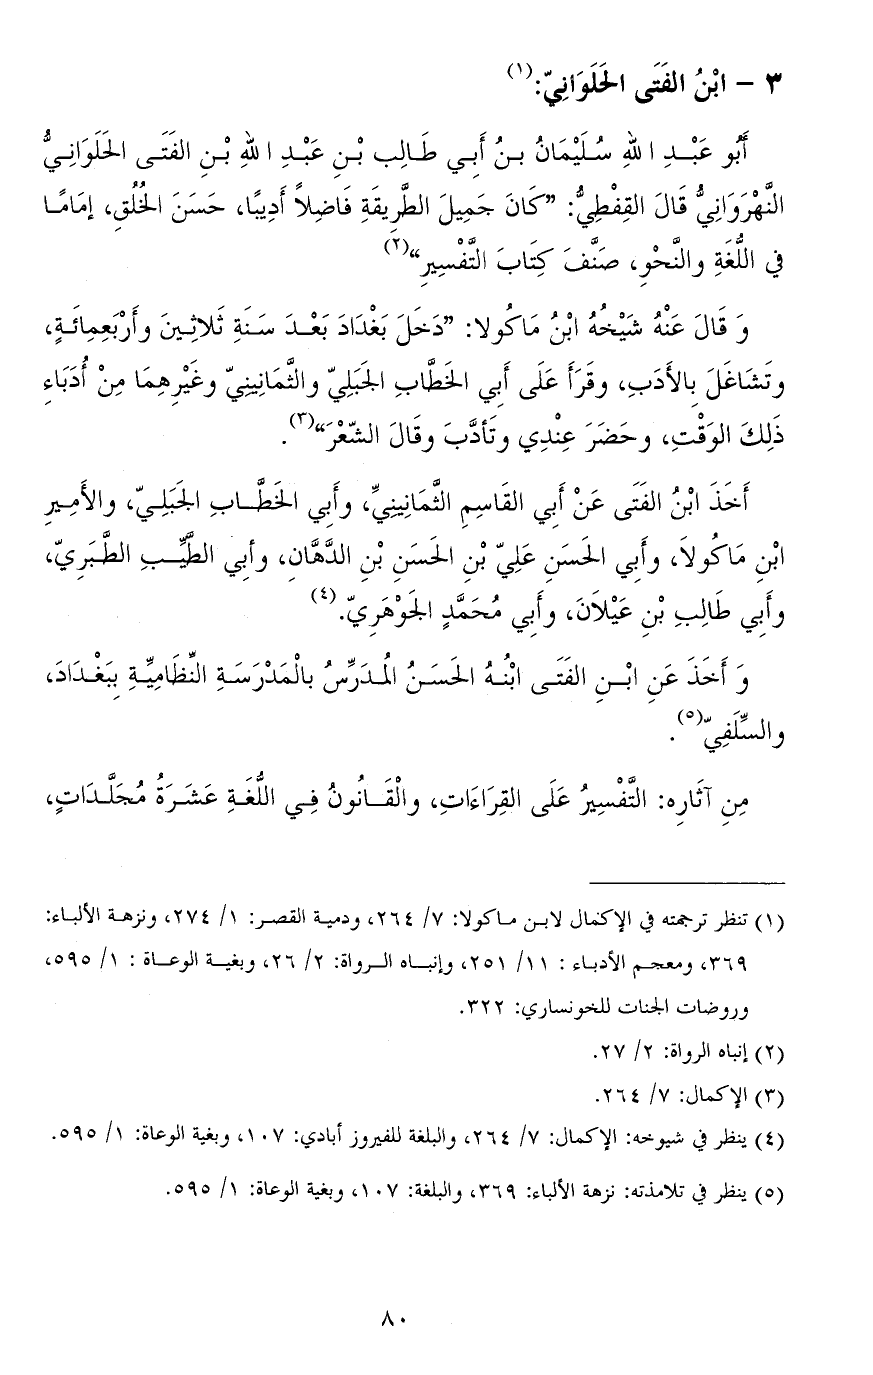 ٣ - ابْنُ الفَتَى الحَلَوَانِيّ:(١)
أَبُو عَبْدِ اللهِ سُلَيْمَانُ بنُ أَبي طَالِب بْنِ عَبْدِ اللهِ بْنِ الفَتَى الحَلَوَانِيُّ
النَّهْرَوَانِيُّ قَالَ القِفْطِيُّ: ”كَانَ جَمِيلَ الطَّرِيقَةِ فَاضِلاً أَدِيبًا، حَسَنَ الخُلُقِ، إِمَامًا
في اللُّغَةِ والنَّحْوِ، صَنَّفَ كِتَابَ التَّفْسِيرِ“(٢)
وَ قَالَ عَنْهُ شَيْخُهُ ابْنُ مَاكُولا: ”دَخَلَ بَغْدَادَ بَعْدَ سَنَةِ ثَلاثِينَ وأَرْبَعِمائَةٍ،
وتَشَاغَلَ بِالأَدَبِ، وقَرَأَ عَلَى أَبي الخَطَّابِ الجَبَلِيّ والثَّمَانِينِيّ وغَيْرِهِمَا مِنْ أُدَبَاءِ
ذَلِكَ الوَقْتِ، وحَضَرَ عِنْدِي وتَأدَّبَ وقَالَ الشّعْرَ“(٣).
أَخَذَ ابْنُ الفَتَى عَنْ أَبي القَاسِمِ الثَّمَانِينِيِّ، وأَبي الخَطَّابِ الجَبَلِيّ، والأَمِيرِ
ابْنِ مَاكُولاَ، وأَبي الحَسَنِ عَلِيّ بْنِ الحَسَنِ بْنِ الدَّهَّانِ، وأبي الطَّيِّبِ الطَّبَرِيّ،
وأَبي طَالِبِ بْنِ عَيْلاَنَ، وأَبي مُحَمَّدٍ الجَوْهَرِيّ.(٤)
وَ أَخَذَ عَنِ ابْنِ الفَتَى ابْنُهُ الحَسَنُ المُدَرِّسُ بالْمَدْرَسَةِ النِّظَامِيَّةِ بِبَغْدَادَ،
والسِّلَفِيّ(٥).
مِنِ آثَارِه: التَّفْسِيرُ عَلَى القِرَاءَاتِ، والْقَانُونُ فِي اللُّغَةِ عَشَرَةُ مُجَلَّدَاتٍ،
(١) تنظر ترجمته في الإكمال لابن ماكولا: ٧/ ٢٦٤، ودمية القصر: ١/ ٢٧٤، ونزهة الألباء:
٣٦٩، ومعجم الأدباء : ١١/ ٢٥١، وإنباه الرواة: ٢/ ٢٦، وبغية الوعاة : ١/ ٥٩٥،
وروضات الجنات للخونساري: ٣٢٢.
(٢) إنباه الرواة: ٢/ ٢٧.
(٣) الإكمال: ٧/ ٢٦٤.
(٤) ينظر في شيوخه: الإكمال: ٧/ ٢٦٤، والبلغة للفيروز أبادي: ١٠٧، وبغية الوعاة: ١/ ٥٩٥.
(٥) ينظر في تلامذته: نزهة الألباء: ٣٦٩، والبلغة: ١٠٧، وبغية الوعاة: ١/ ٥٩٥.
٨٠